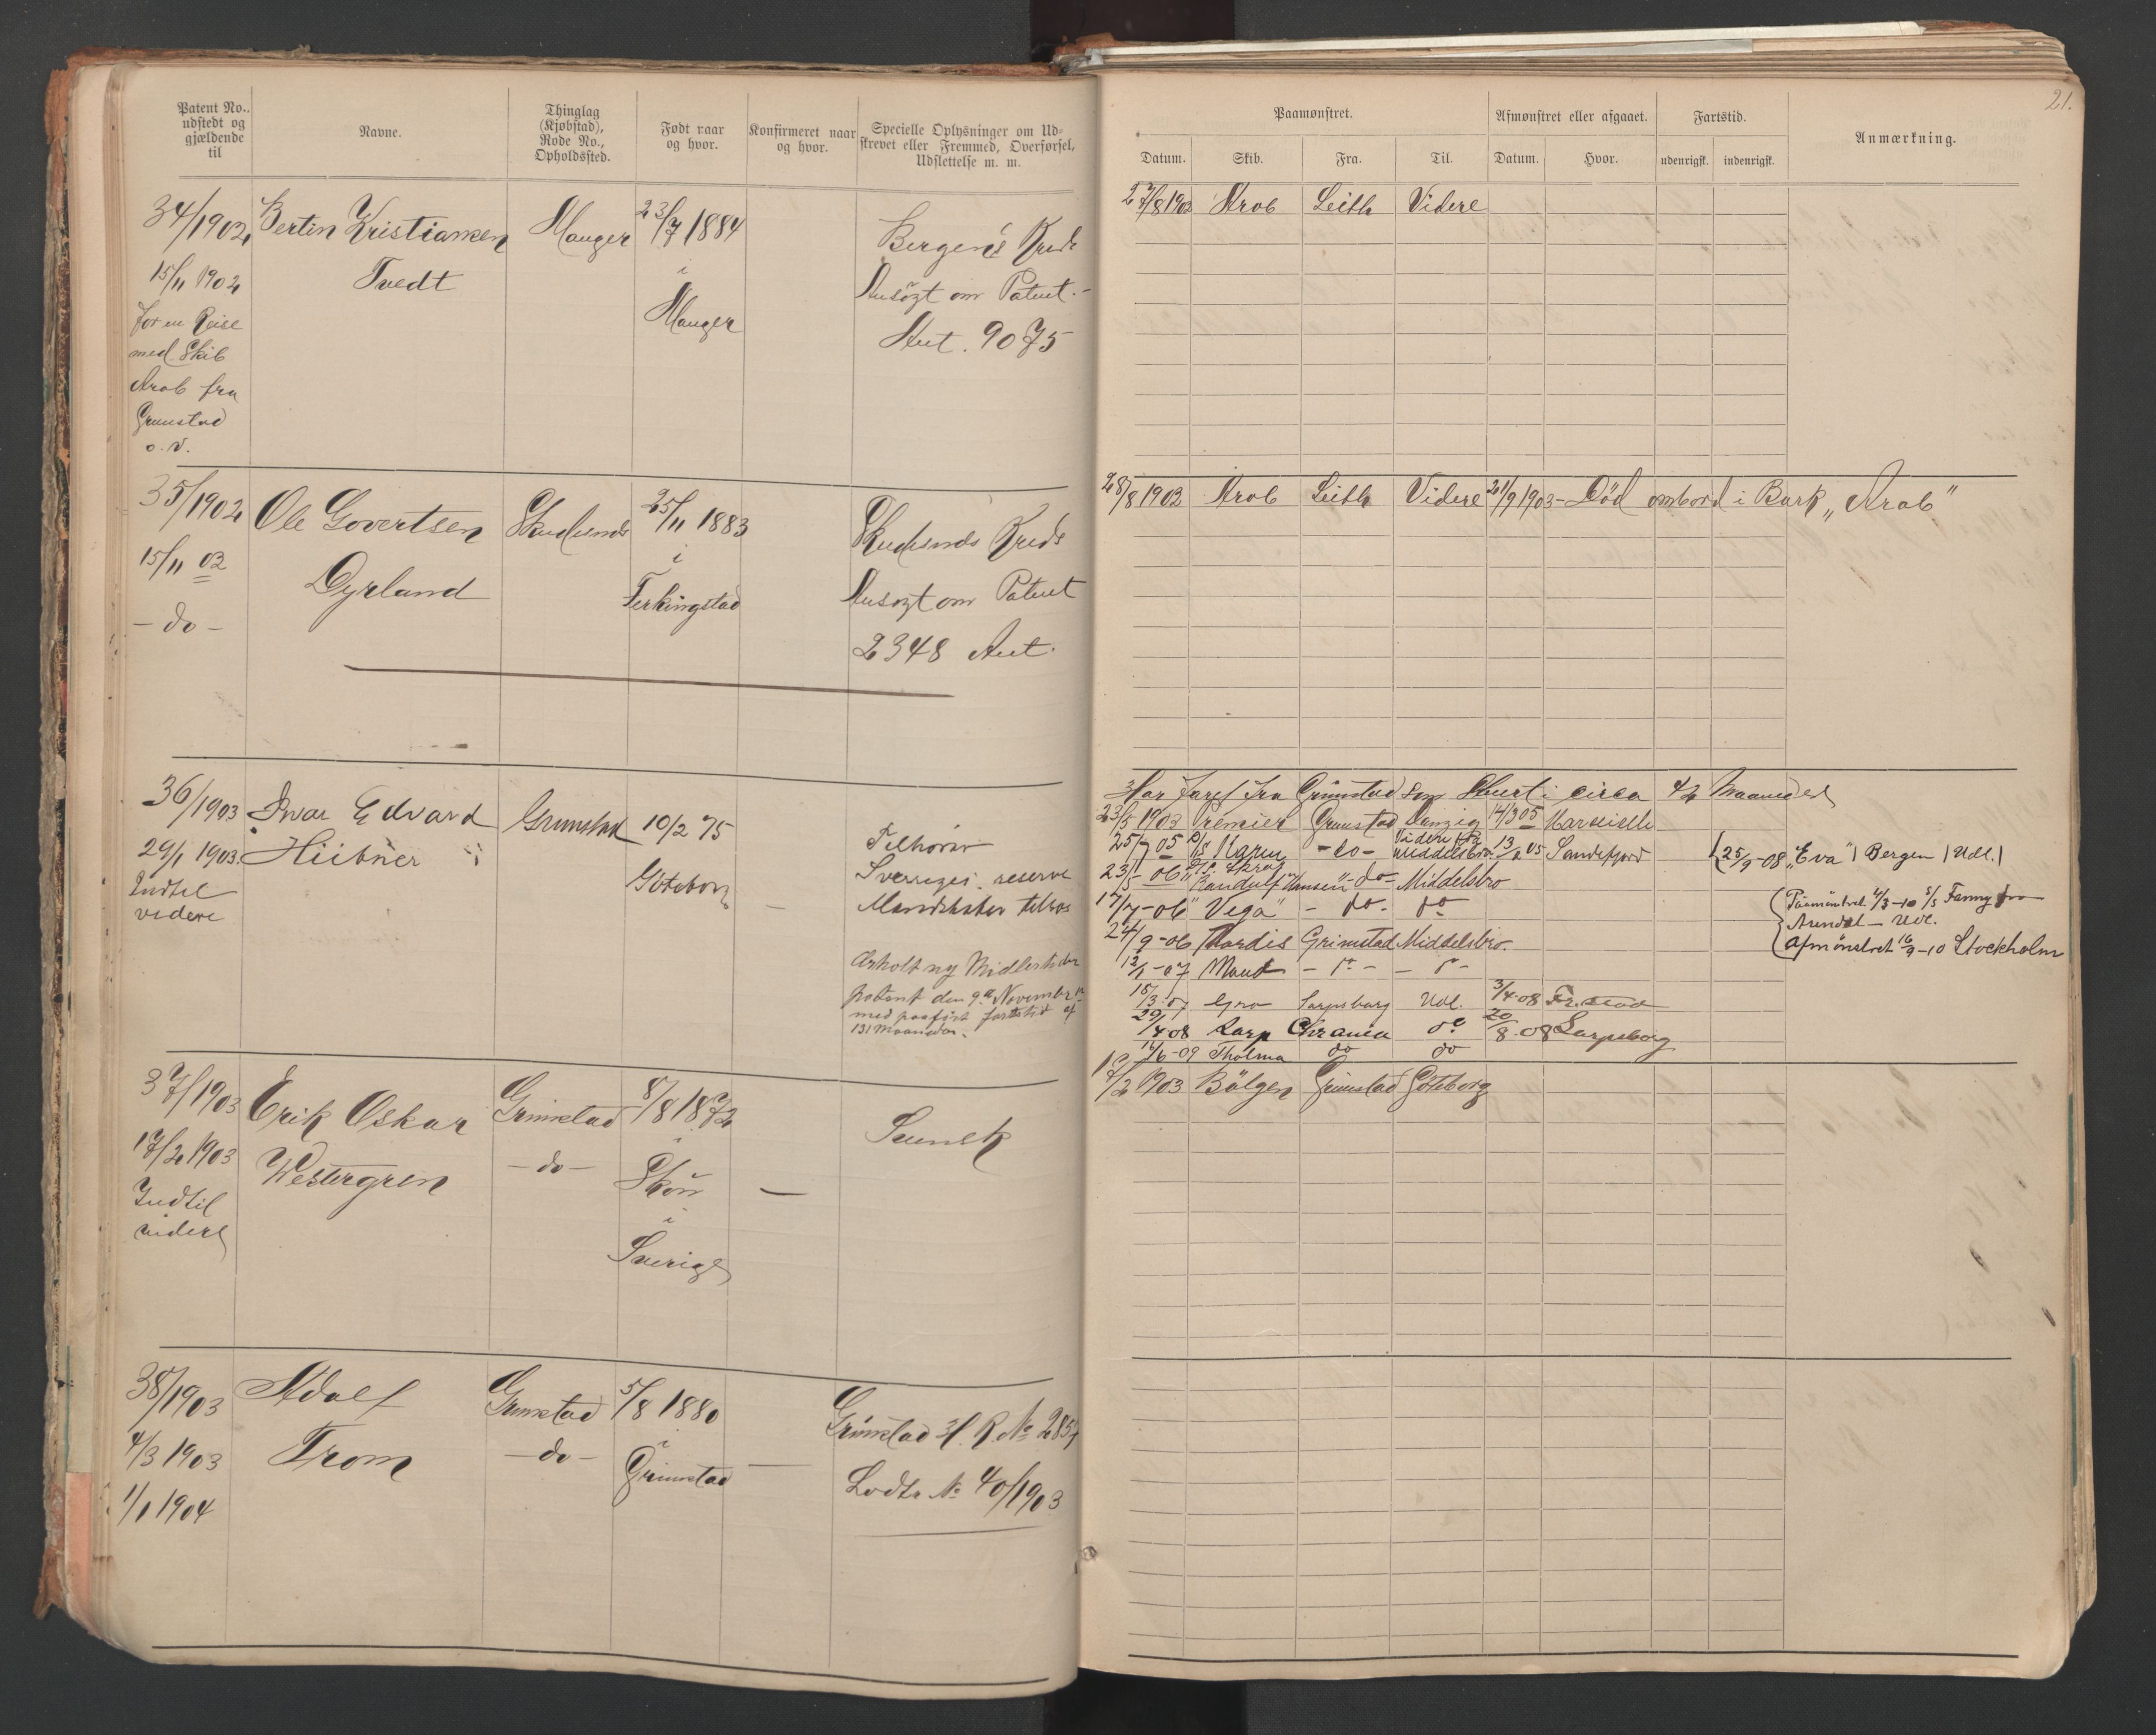 Patent No.,
udstedt og
gjældende
til
Navne.
Thinglag
(Kjøbstad),
Rode No.,
Opholdssted.
Født naar
og hvor.
Konfirmeret naar
og hvor.
Specielle Oplysninger om Ud-
skrevet eller Fremmed, Overførsel,
Udslettelse m. m.
34/1902
15/11 1902
for en Reise
med Skib
Arab fra
Grimstad
o. V.
Bertin Kristiansen
Tvedt
Manger
23/7 1884
i
Manger
Bergens Kreds
Ansøgt om Patent.-
Ant. 9075
35/1902
15/11 02
- do -
Ole Govertsen
Dyrland
Skudesnæs
25/11 1883
i
Ferkingstad
Skudesnæs Kreds
Ansøgt om Patent
2348 Ant.
36/1903
29/1 1903.
Indtil
videre
Ivar Edvard
Hübner
Grimstad
10/2 75
Göteborg
-
Tilhører
Sveriges reserve
Mandskaber tilsøs
Erholdt ny Midlertidig
patent den 9de Novembr
med paaført fartstid af
131 maaneder.
37/1903
17/2 1903
Indtil
videre
Erik Oskar
Westergren
Grimstad
- do -
8/8 1872
i
Skön
i
Sverige
-
Svensk
38/1903
4/3 1903
1/1 1904
Adolf
From
Grimstad
- do -
5/8 1880
i
Grimstad
-
Grimstad H. R. No 2857
Lodtr. No 40/1903
21.
Paamønstret.
Afmønstret eller afgaaet.
Fartstid.
Anmærkning.
Datum.
Skib.
Fra.
Til.
Datum.
Hvor.
udenrigsk.
indenrigsk.
27/8 1902 Arab Leith Videre
28/8 1902 Arab Leith Videre 21/9 1903 - Død ombord i Bark „Arab"
Har faret fra Grimstad som Stuert i circa 42 Maaneder
23/5 1903 Premier Grimstad Danzig 14/3 05 Marseille
25/7 05 D/S Karen - do - Videre fra Middelsbro. 13/9 05 Sandefjord {25/9-08 „Eva" | Bergen | Udl.|
23/5 06 „Randulf Hansen" - do - Middelsbro
17/7-06 „Vega" - do - do
Paamönstret 4/3-10 S/S Fanny fra
Arendal - Udl.
Afmönstret 16/9-10 Stockholm
24/9-06 Hardis Grimstad Middelsbro.
12/1-07 Maud - do - - do -
15/3-07 Gro Sarpsborg Udl. 3/4-08 Fr.stad
29/4 08 Sarp Chrania do 20/8.08 Sarpsborg
14/6-09 Tholma do do
17/2 1903 Bölgen Grimstad Göteborg